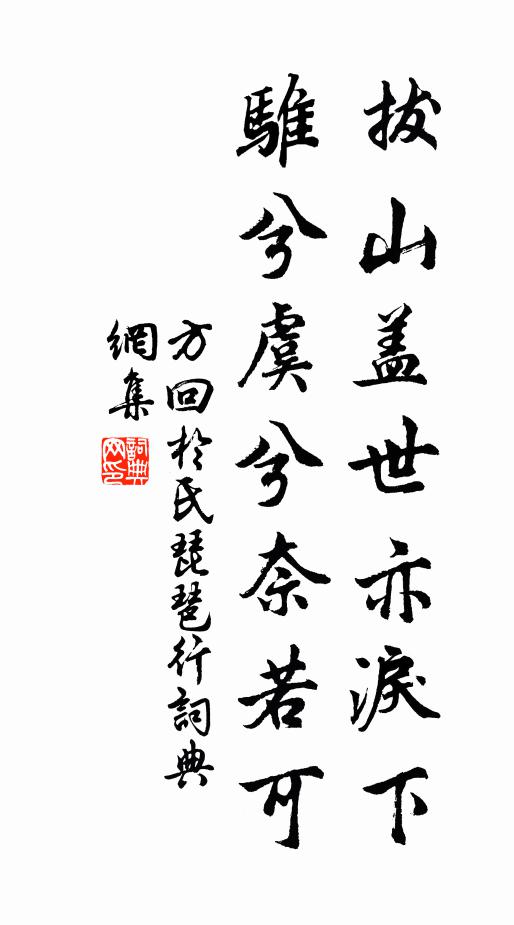 拔山盖世亦淚下
騅兮虞兮奈若可
方回於氏琵琶行詞典
網集
詞典
网印